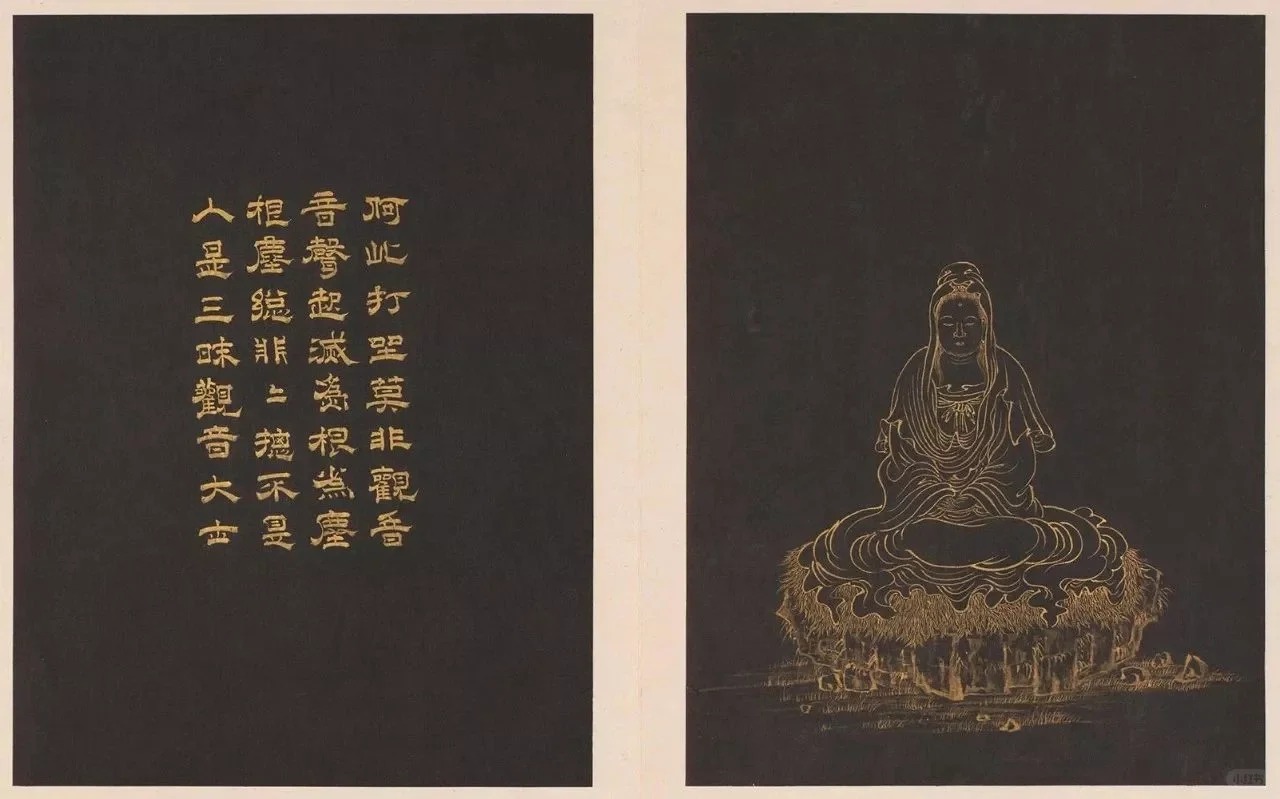 何此打坐莫非觀音
音聲起滅為根為塵
根塵緫非〻摠不是
人是三昧觀音大士
小红书